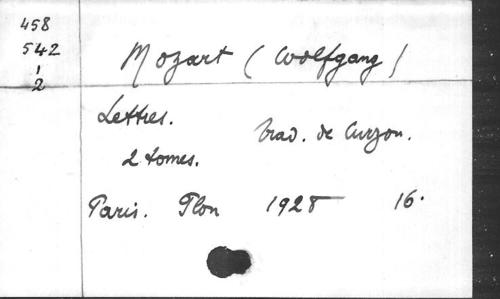 458
542
1
2
Mozart (Wolfgang)
Lettres.
trad. de Curzon.
2 tomes.
Paris. Plon 1928 16.